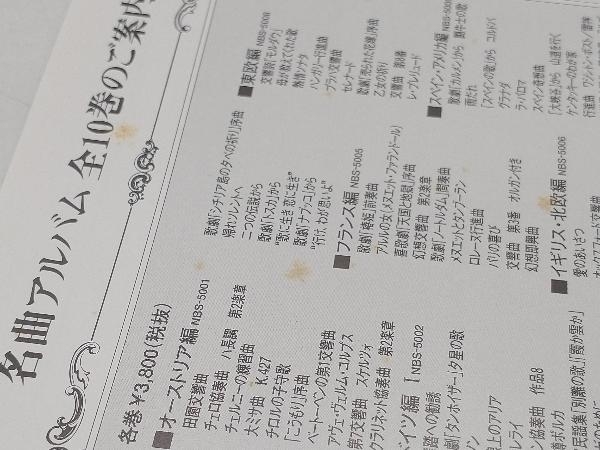 名曲アルバム 全10巻のご案内
各巻 ¥3,800(税抜)
■オーストリア編 NBS-5001
田園交響曲
チェロ協奏曲 ハ長調 第2楽章
チェルニーの練習曲
大ミサ曲 K.427
チロルの子守歌
「こうもり」序曲
ベートーベンの第1交響曲
アヴェ・ヴェルム・コルプス
第7交響曲 スケルツォ
クラリネット協奏曲 第2楽章
ドイツ編 I NBS-5002
踏への勧誘
劇「タンホイザー」夕星の歌
上のアリア
レライ
ン協奏曲 作品8
尊ポルカ
民謡集「別離の歌」「霞か雲か」
歌劇「シチリア島の夕べの祈り」序曲
帰れソレントへ
二つの伝説から
歌劇「トスカ」から
"歌に生き 恋に生き"
歌劇「ナブッコ」から
"行け、わが思いよ"
■フランス編 NBS-5005
歌劇「椿姫」前奏曲
アルルの女「メヌエット・ファランドール」
喜歌劇「天国と地獄」序曲
幻想交響曲 第2楽章
歌劇「ノートルダム」間奏曲
メヌエットとタンブーラン
ロレーヌ行進曲
パリの喜び
交響曲 第3番 オルガン付き
幻想即興曲
■イギリス・北欧編 NBS-5006
愛のあいさつ
オックスフォード交響曲
■東欧編 NBS-5008
交響詩「モルダウ」
母が教えてくれた歌
熱情ソナタ
ハンガリー行進曲
プラハ交響曲
セレナード
歌劇「売られた花嫁」序曲
乙女の祈り
交響曲 第8番
レ・プレリュード
■スペイン・アメリカ編
歌劇「カルメン」から 闘牛士の歌
雨だれ
「スペインの歌」から コルドバ
グラナダ
ラ・パロマ
スペイン奇想曲
「大峡谷」から 山道を行く
ケンタッキーのわが家
行進曲 ワシントン・ポスト/雷神